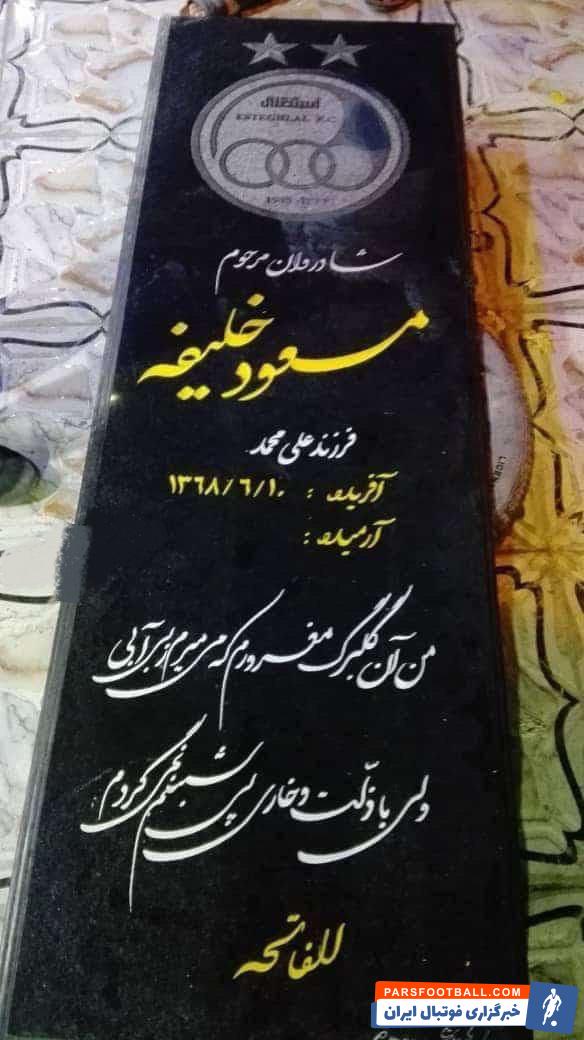 استقلال
ESTEGHLAL F.C
شادروان مرحوم
مسعود خلیفه
فرزند علی محمد
آفرینش : ۱۳۶۸/۶/۱۰
آرمیدن :
من آن گلبرگ مغرورم که می میرم ز بی آبی
ولی با ذلّت و خاری پی شبنم نمی گردم
للفاتحه
PARSFOOTBALL.COM
خبرگزاری فوتبال ایران